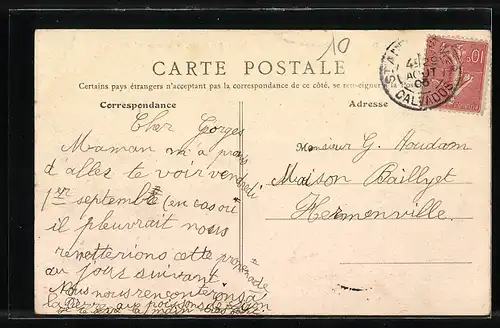 10
CARTE POSTALE
Certains pays étrangers n'acceptant pas la correspondance de ce côté, se renseigner
Correspondance
Adresse
Cher Gorges
Maman m'a promis
d'aller te voir vendredi
1er septembre (en cas où
il pleuvrait nous
remetterions cette promenade
au jour suivant
Nous nous rencontrerons à
la
Monsieur G. Houdam
Maison Baillyet
Hermonville
AOUT
CALVADOS